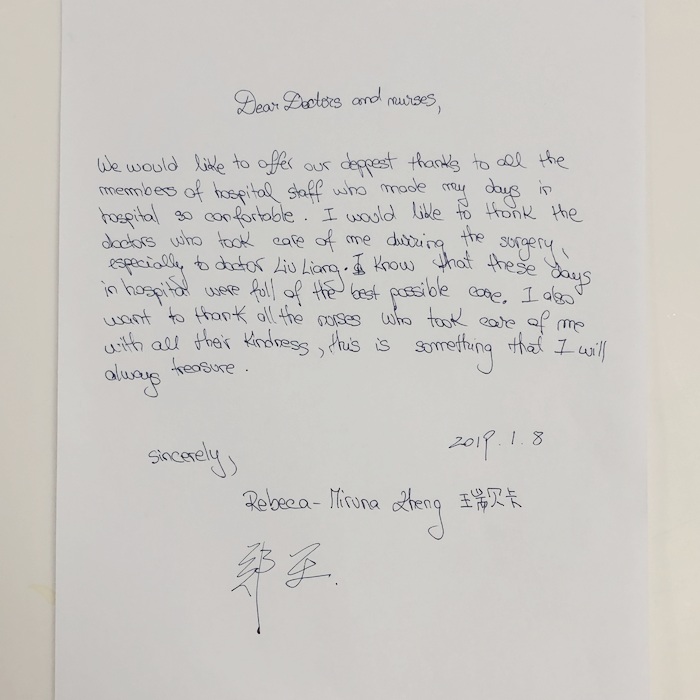 Dear Doctors and nurses,
We would like to offer our deppest thanks to all the
members of hospital staff who made my days in
hospital so confortable. I would like to thank the
doctors who took care of me during the surgery,
especially to doctor Liu Liang. I know that these days
in hospital were full of the best possible care. I also
want to thank all the nurses who took care of me
with all their kindness, this is something that I will
always treasure.
2019.1.8
sincerely,
Rebeca-Miruna Zheng 瑞贝卡
郑